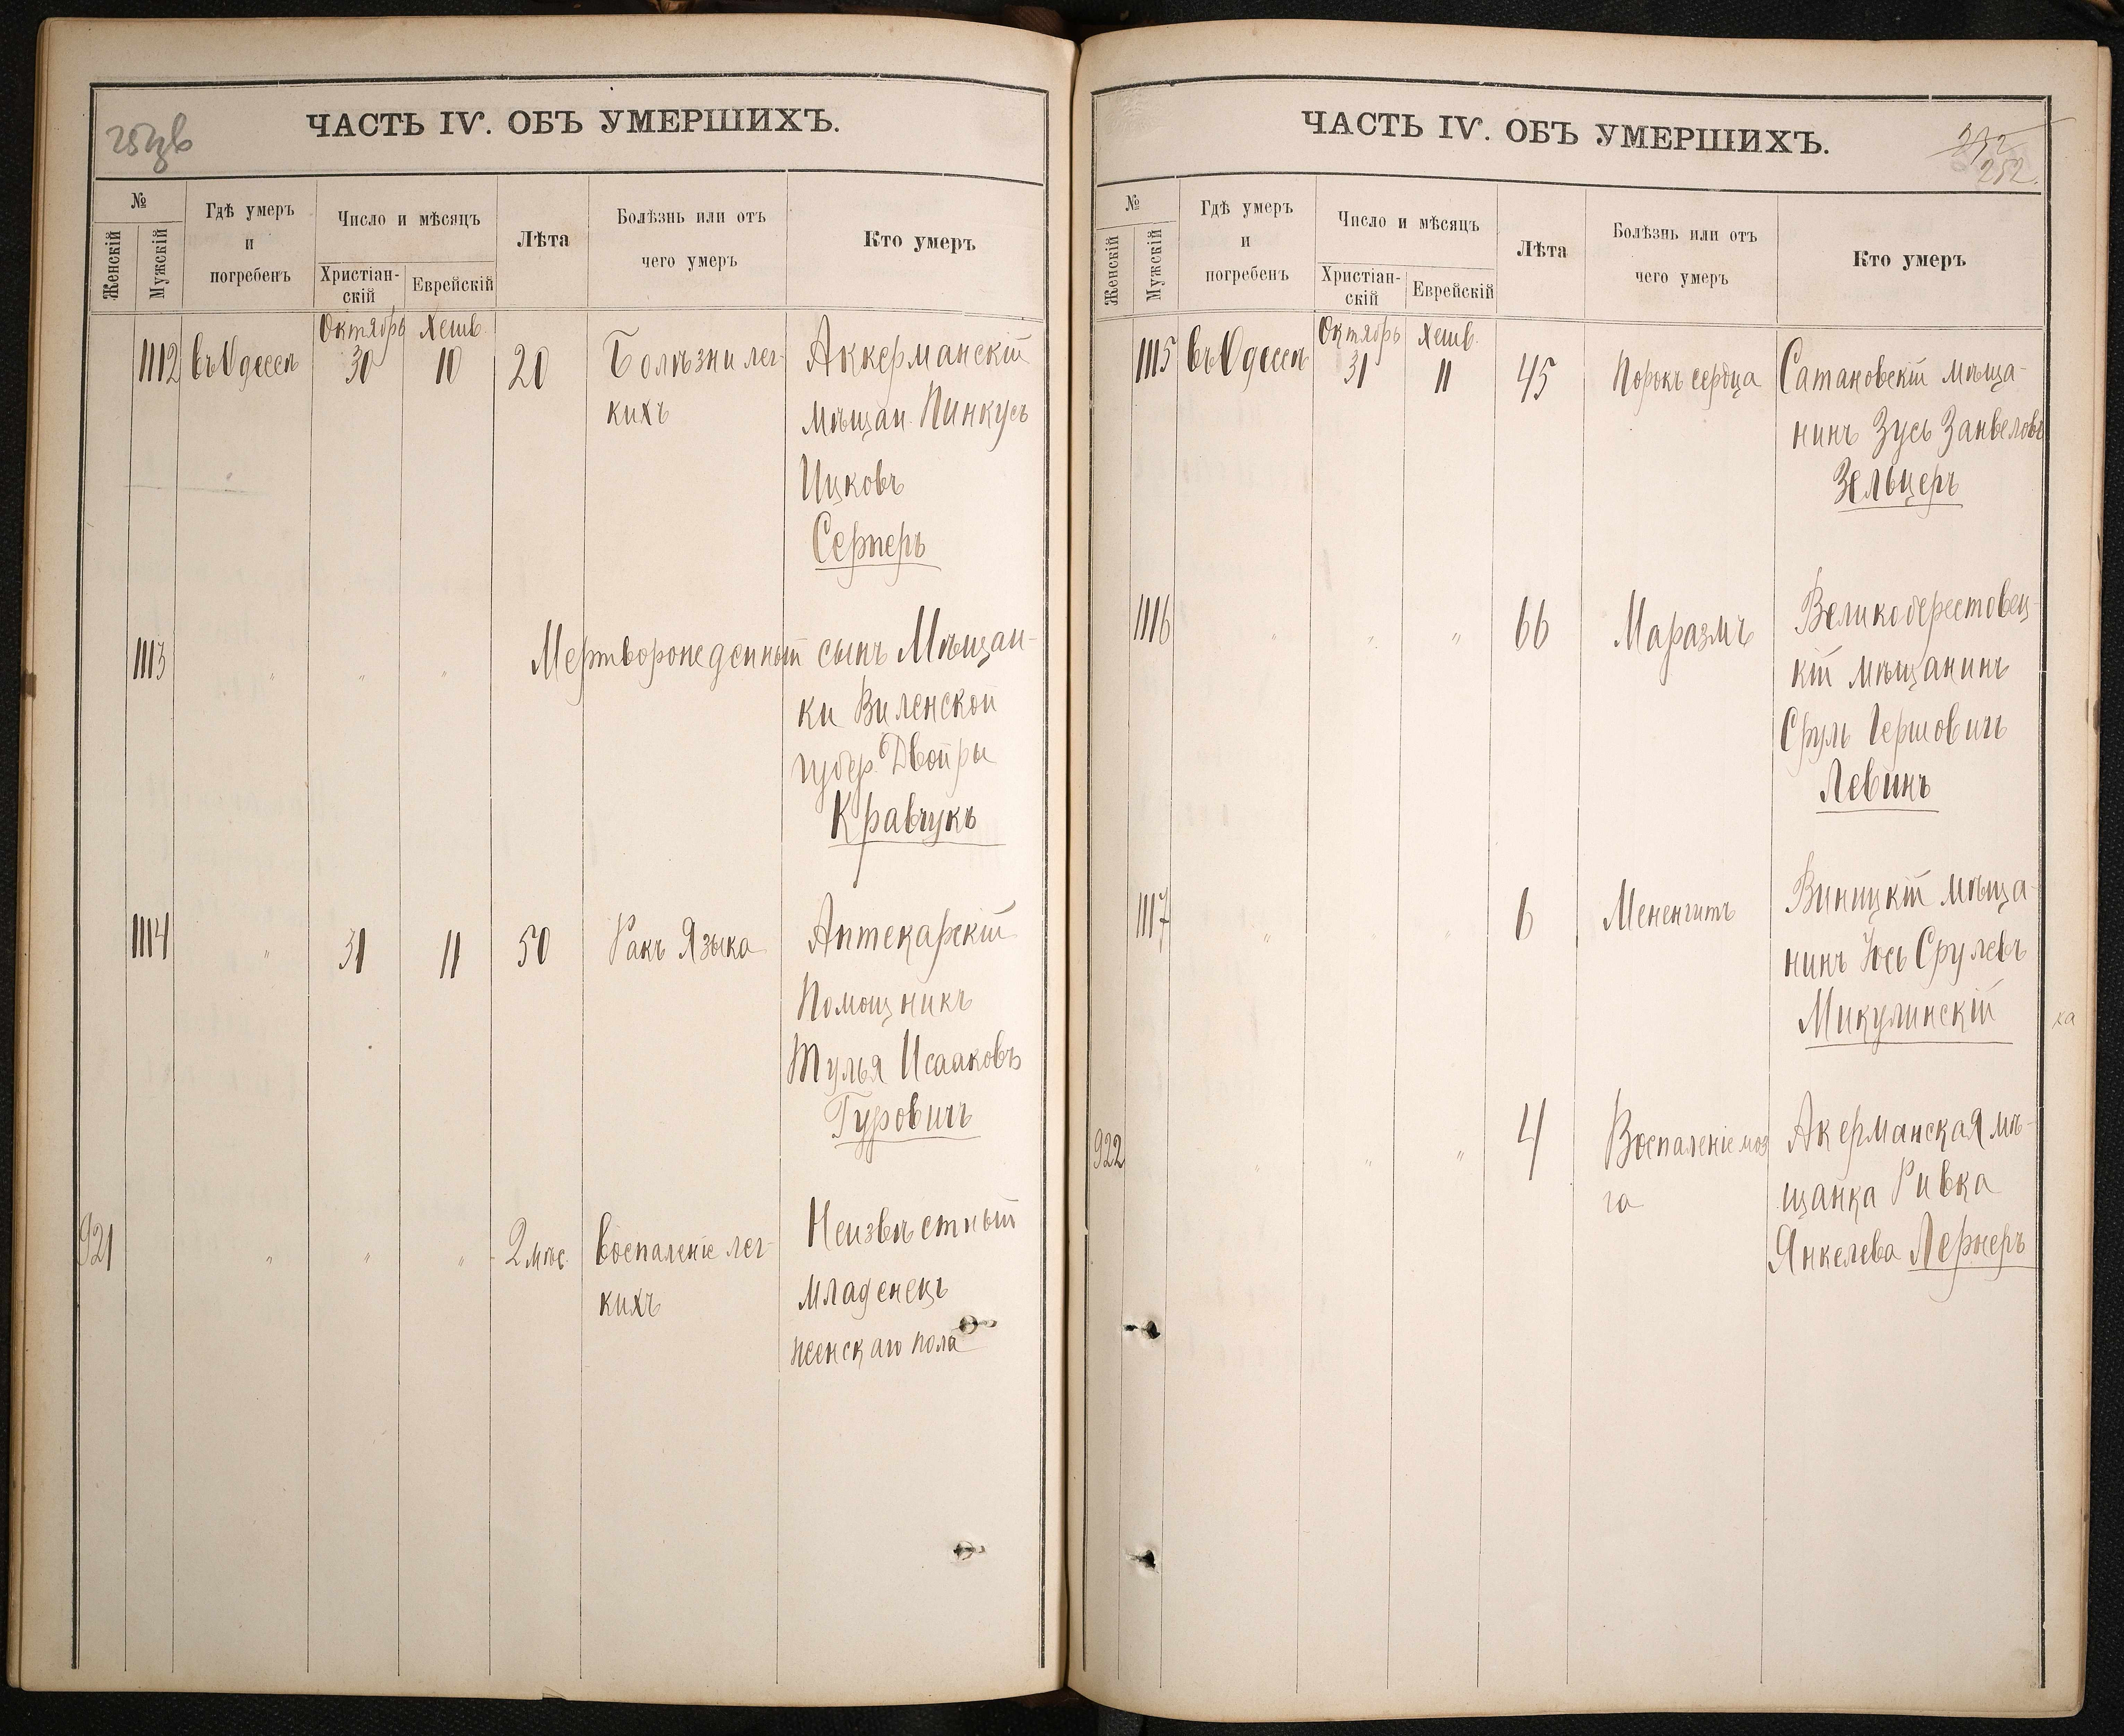 ЧАСТЬ IV. ОБЪ УМЕРШИХЪ.
№
Женскій
Мужскій
Гдѣ умеръ
и
погребенъ
Число и мѣсяцъ
Христіан-
скій
Еврейскій
Лѣта
Болѣзнь или отъ
чего умеръ
Кто умеръ
Октябрь Хешв.
1112 въ Одессѣ 30 10 20 Болѣзни лег- Аккерманскій
кихъ мѣщан. Пинкусъ
Ицковъ
Серперъ
1113 " " " Мертворожденный сынъ Мѣщан-
ки Виленской
губер. Двойры
Кравчукъ
1114 " 31 11 50 Ракъ Языка Аптекарскій
Помощникъ
Тулья Исааковъ
Гуровичъ
921 " " " 2 мѣс. Воспаленіе лег- Неизвѣстный
кихъ младенецъ
женскаго пола
ЧАСТЬ IV. ОБЪ УМЕРШИХЪ.
252.
№
Женскій
Мужскій
Гдѣ умеръ
и
погребенъ
Число и мѣсяцъ
Христіан-
скій
Еврейскій
Лѣта
Болѣзнь или отъ
чего умеръ
Кто умеръ
Октябрь Хешв.
1115 въ Одессѣ 31 11 45 Порокъ сердца Сатановскій мѣща-
нинъ Зусь Занвеловъ
Зельцеръ
1116 " " " 66 Маразмъ Великоберестовец-
кій мѣщанинъ
Сруль Гершовичъ
Левинъ
1117 " " " 6 Мененгитъ Виницкій мѣща-
нинъ Іось Срулевъ
Микулинскій
922 " " " 4 Воспаленіе моз Акерманская мѣ-
га щанка Ривка
Янкелева Лернеръ